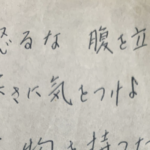 怒るな 腹を立
きに気をつけよ
物を持つ